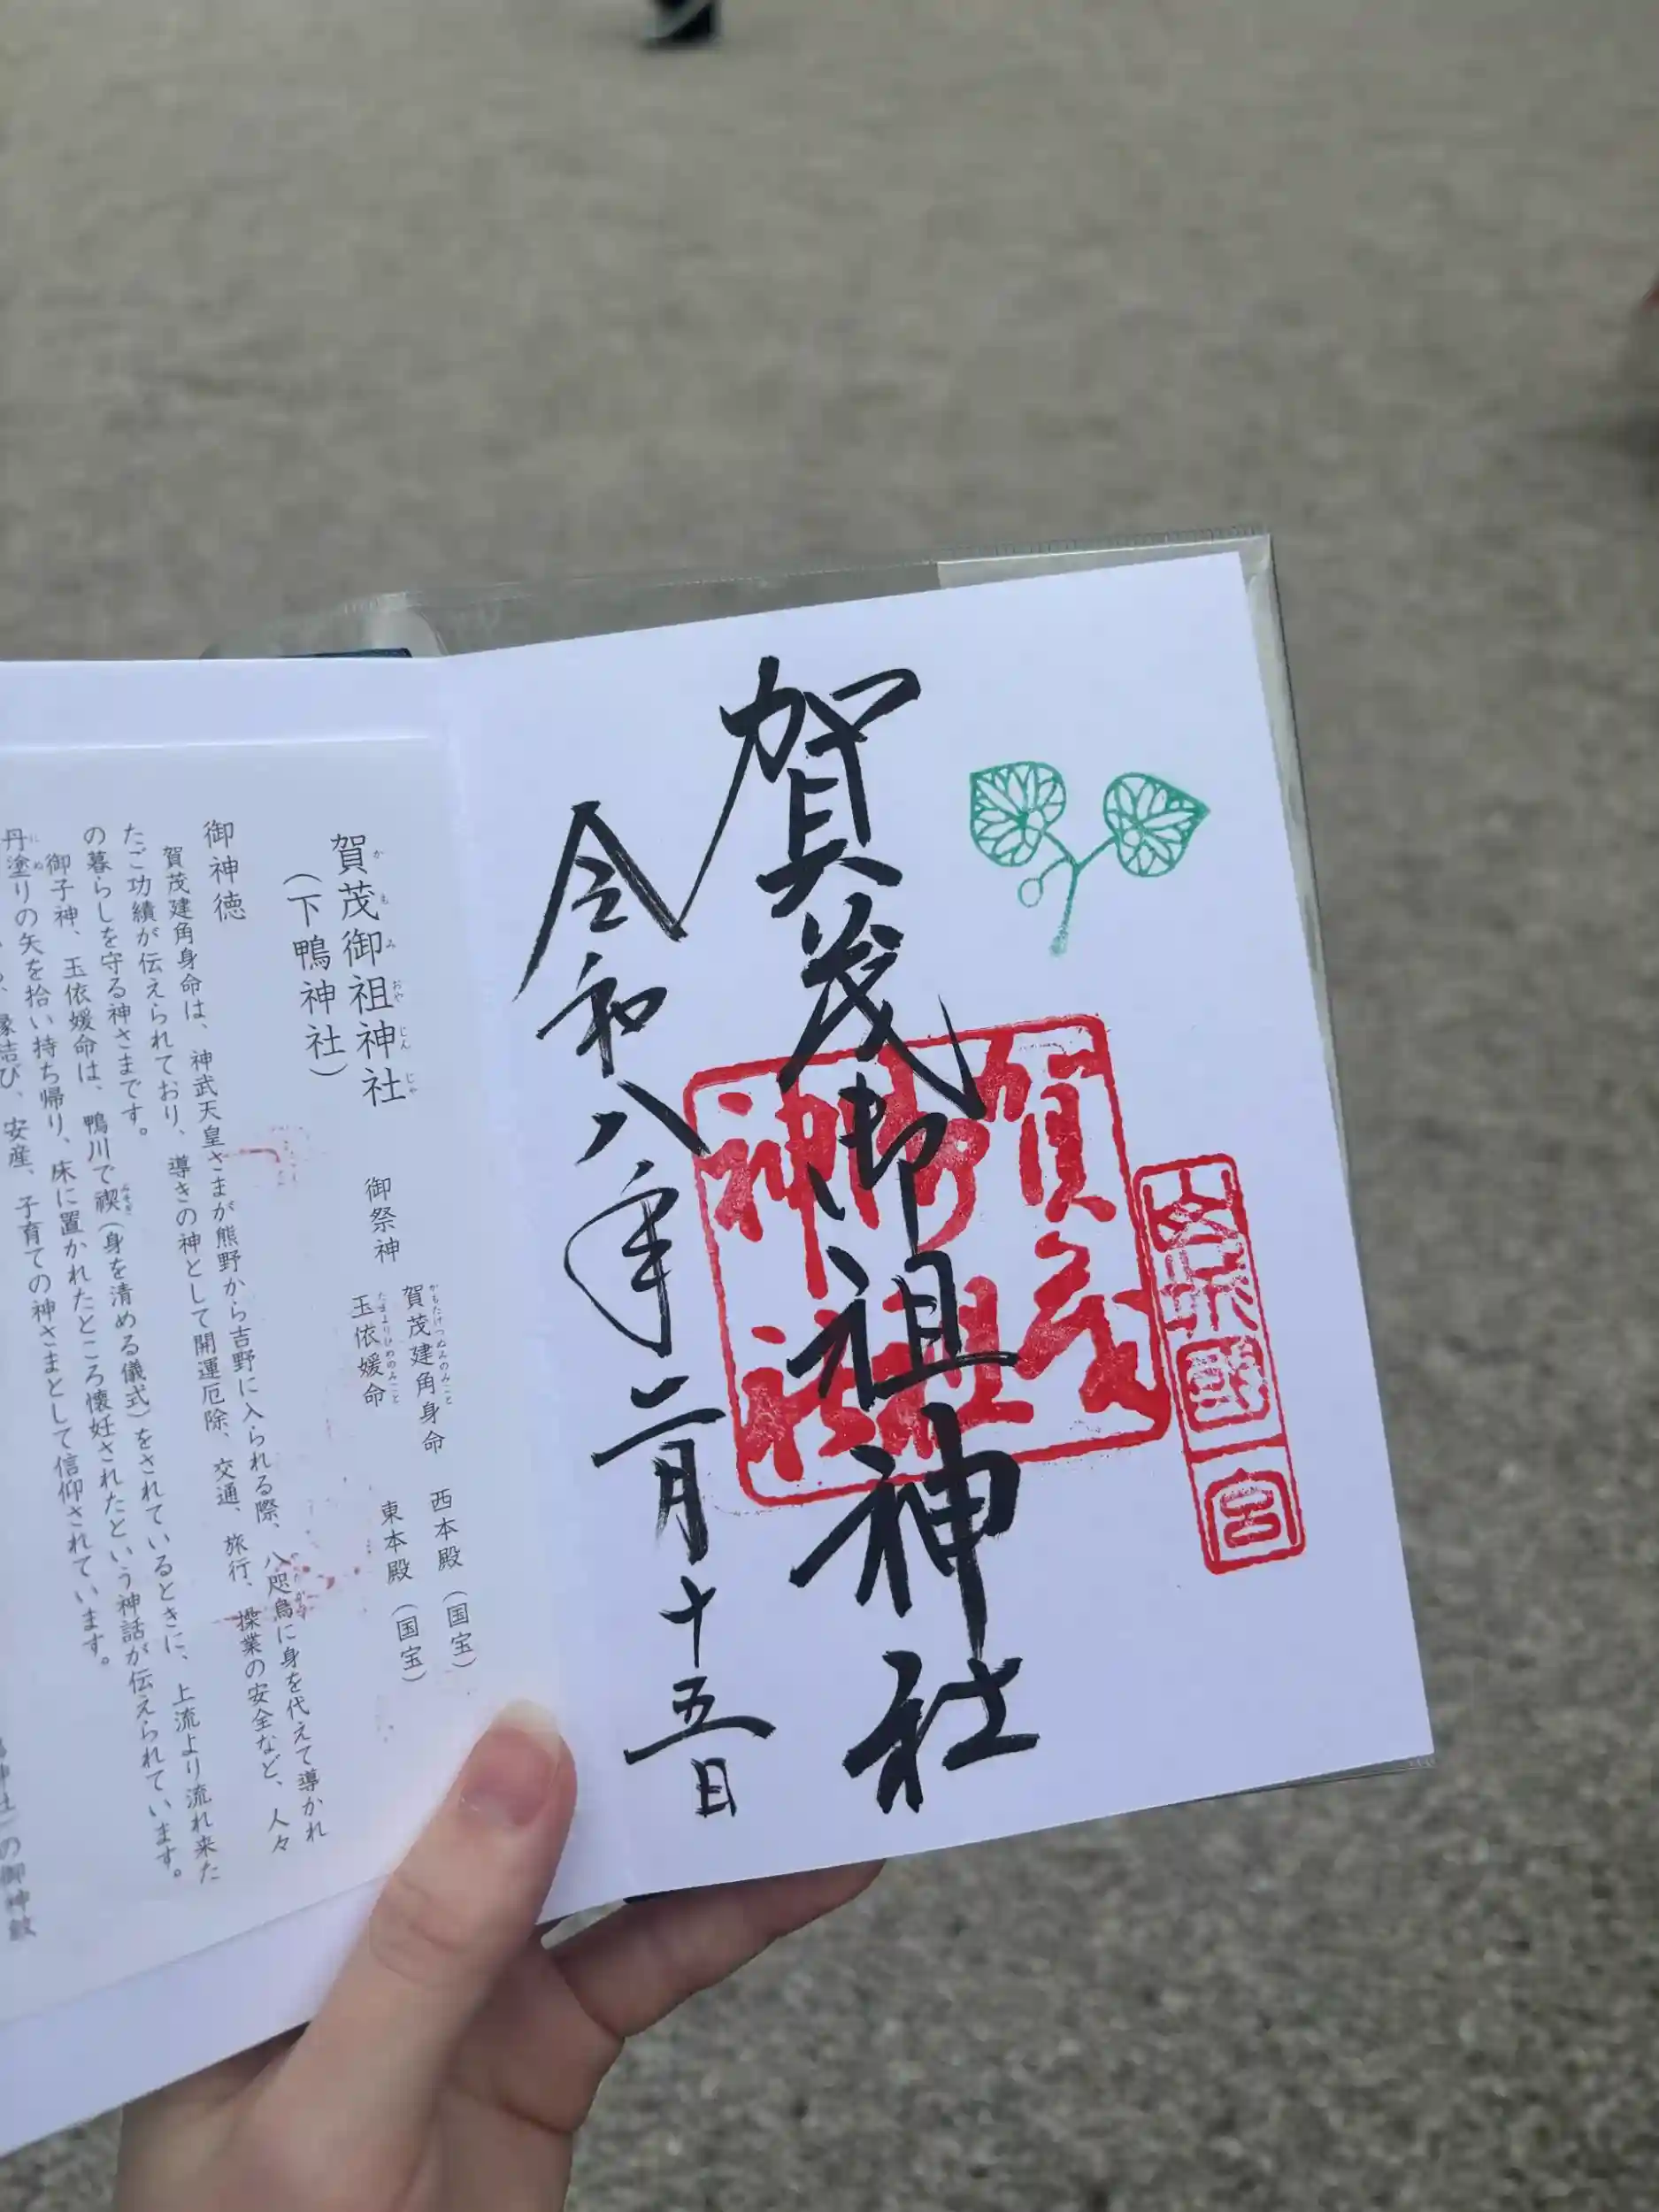 山城國一宮
賀茂御祖神社
賀茂御祖神社
令和八年二月十五日
賀茂御祖神社
かもみおやじんじゃ
(下鴨神社)
御祭神
賀茂建角身命 西本殿(国宝)
かもたけつぬみのみこと
玉依媛命 東本殿(国宝)
たまよりひめのみこと
御神徳
賀茂建角身命は、神武天皇さまが熊野から吉野に入られる際、八咫烏に身を代えて導かれ
たご功績が伝えられており、導きの神として開運厄除、交通、旅行、操業の安全など、人々
の暮らしを守る神さまです。
御子神、玉依媛命は、鴨川で禊(身を清める儀式)をされているときに、上流より流れ来た
丹塗りの矢を拾い持ち帰り、床に置かれたところ懐妊されたという神話が伝えられています。
縁結び、安産、子育ての神さまとして信仰されています。
の御神紋